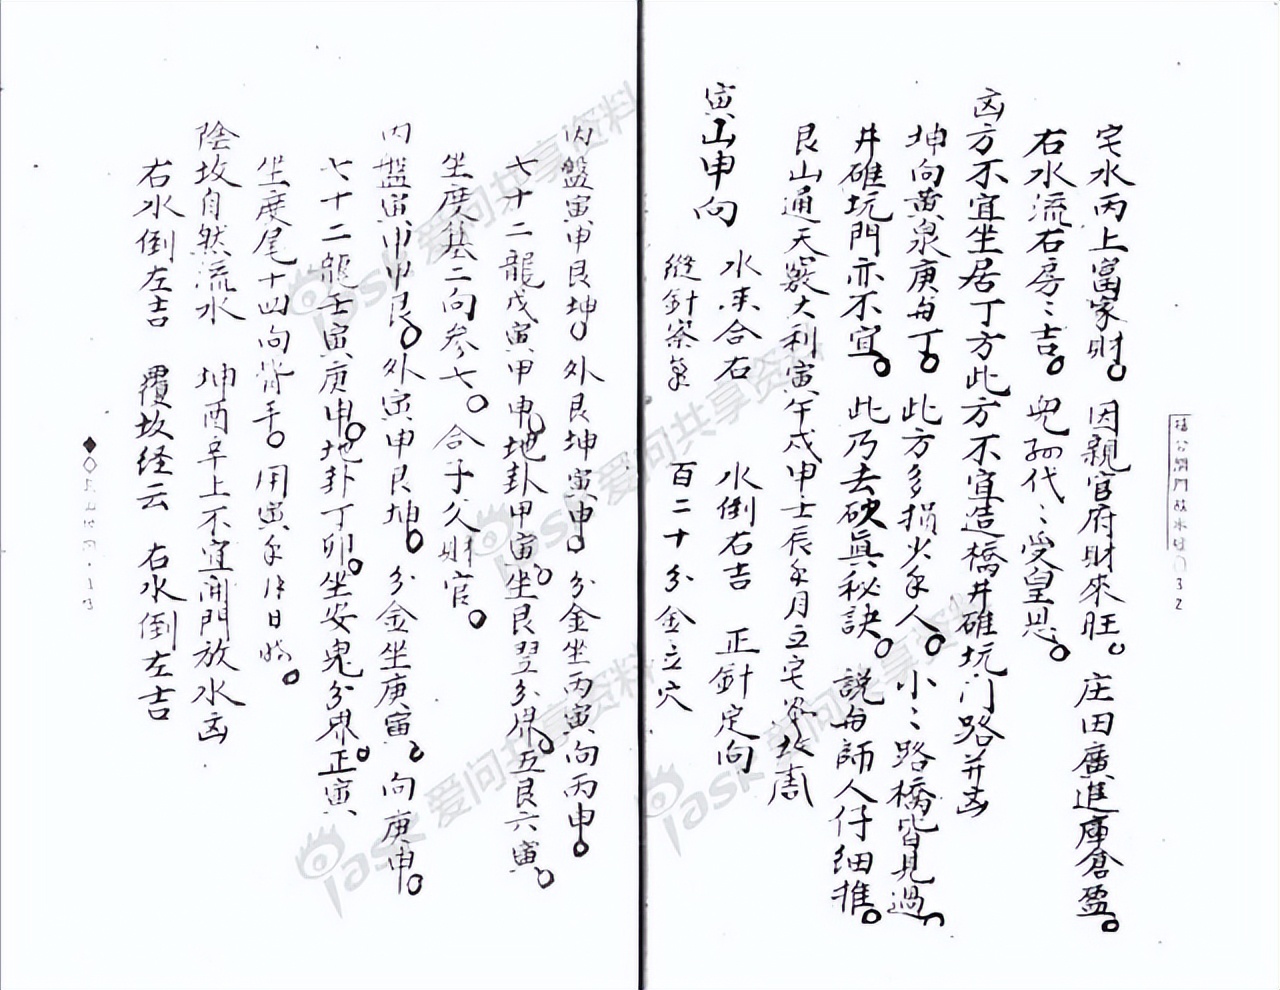 宅水丙上富家財。因親官府財來旺。庄田廣進庫倉盈。
右水流右房〻吉。兒孫代〻受皇恩。
凶方不宜坐居丁方此方不宜造橋井碓坑门路并凶
坤向黃泉庚与丁。此方多損少年人。小〻路橋皆見過
井碓坑門亦不宜。此乃去砍眞秘訣。説与師人仔細推。
艮山通天竅大利寅午戍申壬辰年月立宅
寅山申向
水来合右 水倒右吉 正針定向
縫針 百二十分金立穴
内盤寅申艮坤。外艮坤寅申。分金坐丙寅向丙申。
七十二龍戊寅甲申。地卦甲寅。坐艮翌分界。五艮六寅。
坐度箕二向参七。合子父財官。
内盤寅申艮。外寅申艮坤。分金坐庚寅。向庚申。
七十二龍壬寅庚申。地卦丁卯。坐安鬼分界。正寅
坐度尾十四向背手。用寅年 日 。
陰坟自然流水 坤酉辛上不宜開門放水凶
右水倒左吉 覆坟经云 右水倒左吉
爱问共享资料
爱问共享资料
爱问共享资料
爱问共享资料
iask
iask
iask
iask